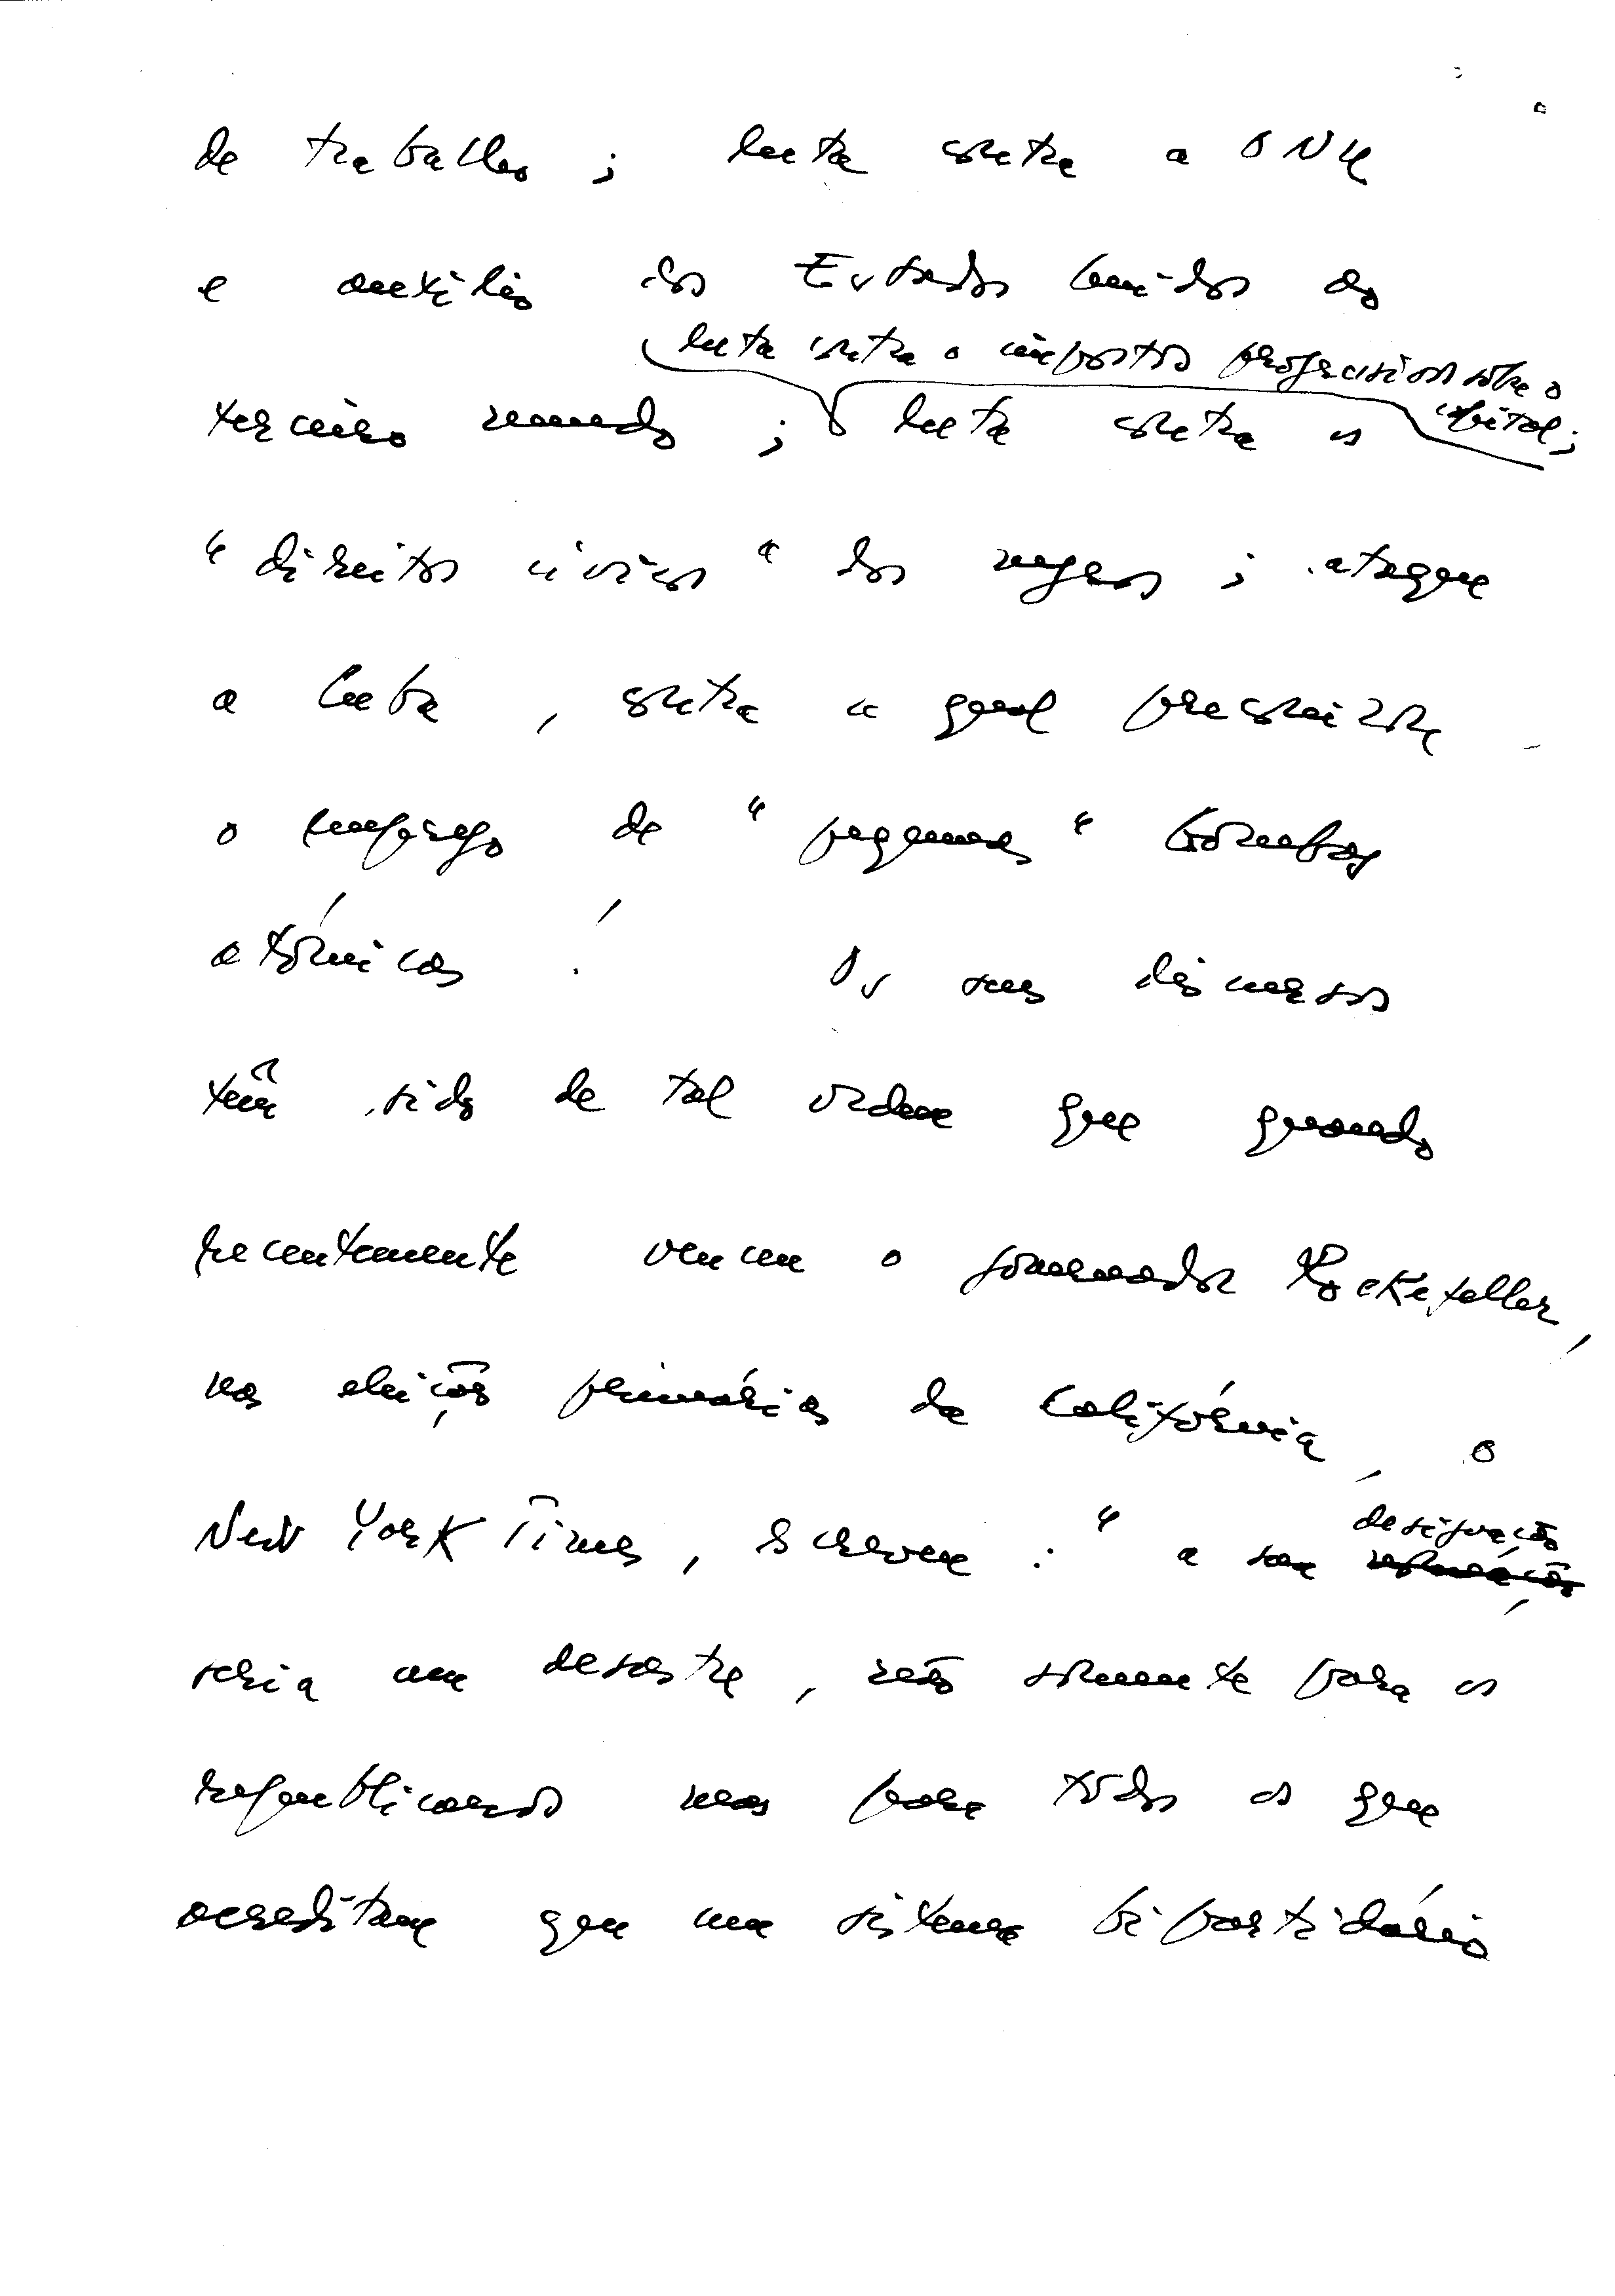 de trabalho ; luta contra a ONU
e auxílio dos Estados Unidos ao
luta contra o impostos progressivos sôbre o capital;
terceiro mundo ; luta contra os
" direitos civicos " dos negros ; ataque
a Cuba , contra a qual preconizou
o emprego de " pequenas " bombas
atómicas ! Os seus discursos
têm sido de tal ordem que quando
recentemente venceu o governador Rockefeller,
nas eleições primárias da Califórnia, o
New York Times, escreveu : " a sua designação
seria um desastre , não somente para os
republicanos mas para todos os que
acreditam que um sistema bipartidário